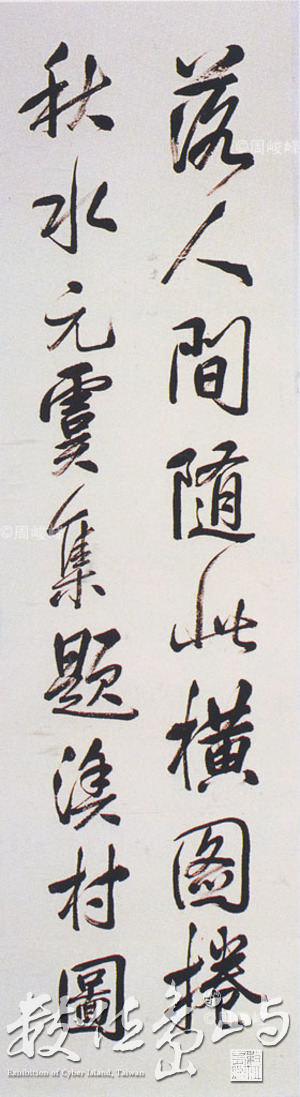 落人間隨此橫图捲
秋水元虞集題漁村圖
©周峻峰
©周峻峰
數位島嶼
Exhibition of Cyber Island, Taiwan